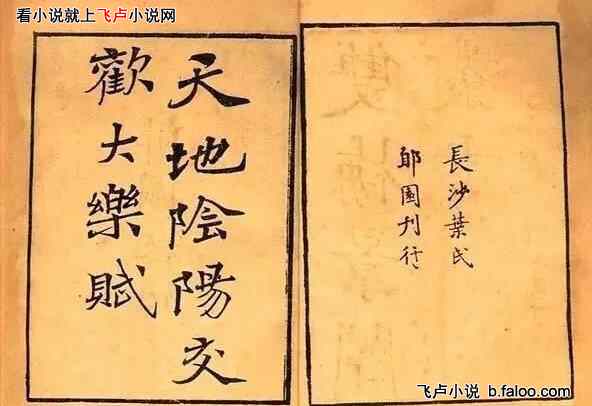 看小说就上飞卢小说网
天地陰陽交
歡大樂賦
長沙葉氏
郋園刊行
飞卢小说 b.faloo.com